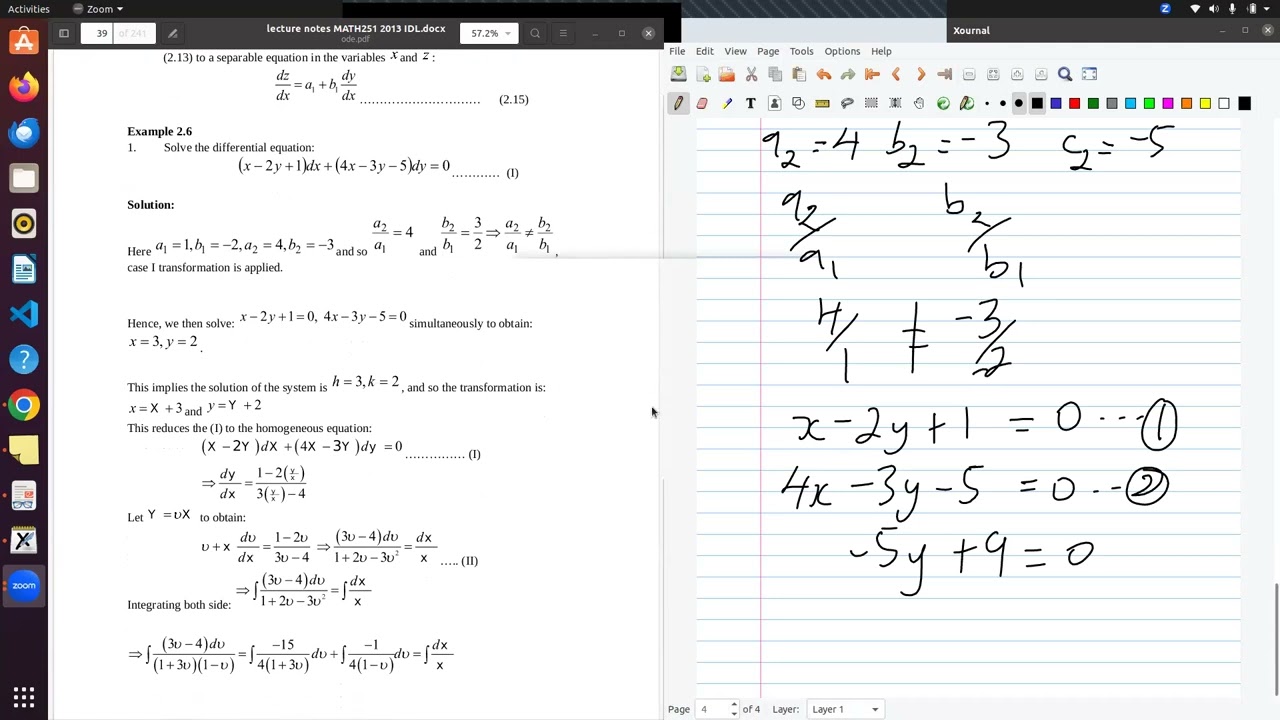 Activities Zoom
39 of 241
lecture notes MATH251 2013 IDL.docx
ode.pdf
57.2%
(2.13) to a separable equation in the variables x and z :
dz/dx = a₁ + b₁ dy/dx .............................. (2.15)
Example 2.6
1. Solve the differential equation:
(x − 2y + 1)dx + (4x − 3y − 5)dy = 0 ............ (I)
Solution:
Here a₁ = 1, b₁ = −2, a₂ = 4, b₂ = −3 and so a₂/a₁ = 4 and b₂/b₁ = 3/2 ⇒ a₂/a₁ ≠ b₂/b₁ ,
case I transformation is applied.
Hence, we then solve: x − 2y + 1 = 0, 4x − 3y − 5 = 0 simultaneously to obtain:
x = 3, y = 2 .
This implies the solution of the system is h = 3, k = 2 , and so the transformation is:
x = X + 3 and y = Y + 2
This reduces the (I) to the homogeneous equation:
(X − 2Y )dX + (4X − 3Y )dy = 0 ............... (I)
⇒ dy/dx = (1 − 2(y/x))/(3(y/x) − 4)
Let Y = υX to obtain:
υ + x dυ/dx = (1 − 2υ)/(3υ − 4) ⇒ (3υ − 4)dυ/(1 + 2υ − 3υ²) = dx/x ..... (II)
Integrating both side: ⇒ ∫(3υ − 4)dυ/(1 + 2υ − 3υ²) = ∫dx/x
⇒ ∫(3υ − 4)dυ/((1 + 3υ)(1 − υ)) = ∫−15/(4(1 + 3υ)) dυ + ∫−1/(4(1 − υ)) dυ = ∫dx/x
Xournal
File Edit View Page Tools Options Help
a₂ = 4 b₂ = −3 c₂ = −5
a₂/a₁ b₂/b₁
4/1 ≠ −3/2
x − 2y + 1 = 0 --- ①
4x − 3y − 5 = 0 -- ②
-5y + 9 = 0
Page 4 of 4 Layer: Layer 1
zoom